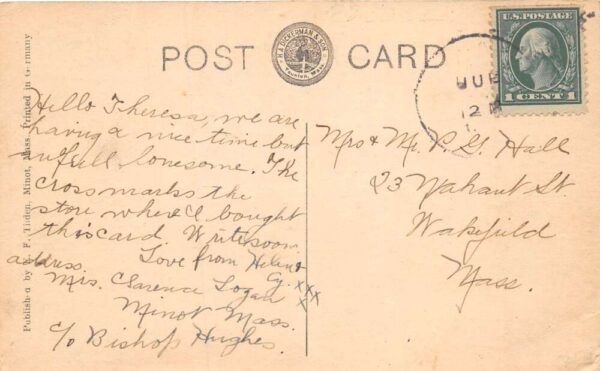 POST CARD
F.A. DICKERMAN & SON
Taunton, Mass.
U.S. POSTAGE
1 CENT 1
12 M
Published by F. Tilden, Minot, Mass. Printed in Germany
Hello Theresa, we are
having a nice time but
awfull lonesome. The
cross marks the
store where I bought
this card. Write soon
Love from Helen &
address.
Mrs. Clarence Logan xxx
x
Minot Mass.
c/o Bishop Hughes.
Mrs & Mr P. G. Hall
23 Nahant St.
Wakefield
Mass.